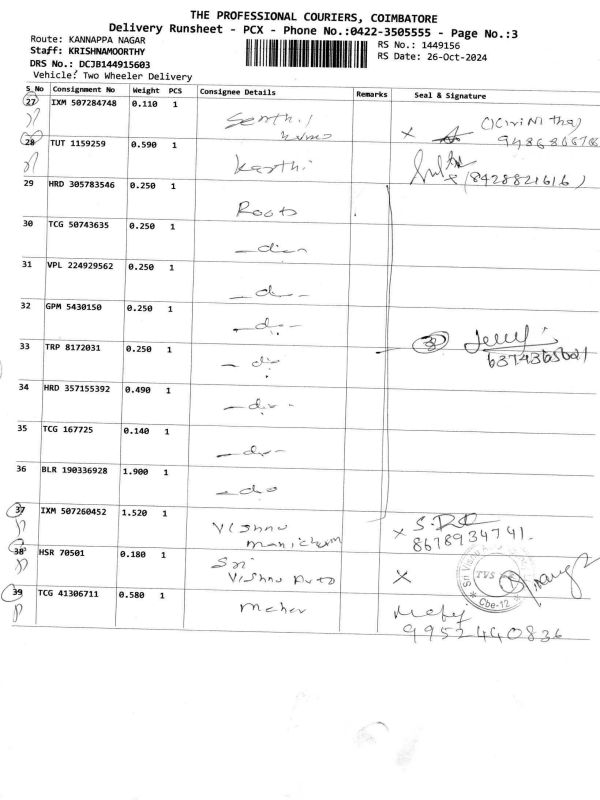 THE PROFESSIONAL COURIERS, COIMBATORE
Delivery Runsheet - PCX - Phone No.:0422-3505555 - Page No.:3
Route: KANNAPPA NAGAR
RS No.: 1449156
Staff: KRISHNAMOORTHY
RS Date: 26-Oct-2024
DRS No.: DCJB144915603
Vehicle: Two Wheeler Delivery
S_No Consignment No Weight PCS Consignee Details Remarks Seal & Signature
27 IXM 507284748 0.110 1 Senthil
x
28 TUT 1159259 0.590 1 Karthi
(8428821616)
29 HRD 305783546 0.250 1 Roots
30 TCG 50743635 0.250 1 -do-
31 VPL 224929562 0.250 1 -do-
32 GPM 5430150 0.250 1 -do-
33 TRP 8172031 0.250 1 -do-
34 HRD 357155392 0.490 1 -do-
35 TCG 167725 0.140 1 -do-
36 BLR 190336928 1.900 1 -do-
37 IXM 507260452 1.520 1 Vishnu
manicham
x S.
8678934741.
38 HSR 70501 0.180 1 Sri
Vishnu Auto
x
TVS
Cbe-12
39 TCG 41306711 0.580 1
9952440836